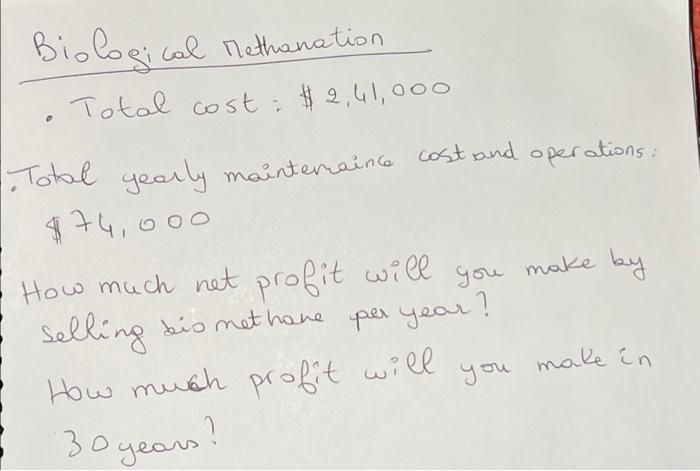 Biological Methanation
. Total cost : $ 2,41,000
. Total yearly maintenaince cost and operations :
$ 74,000
How much net profit will you make by
selling biomethane per year?
How much profit will you make in
30 years?